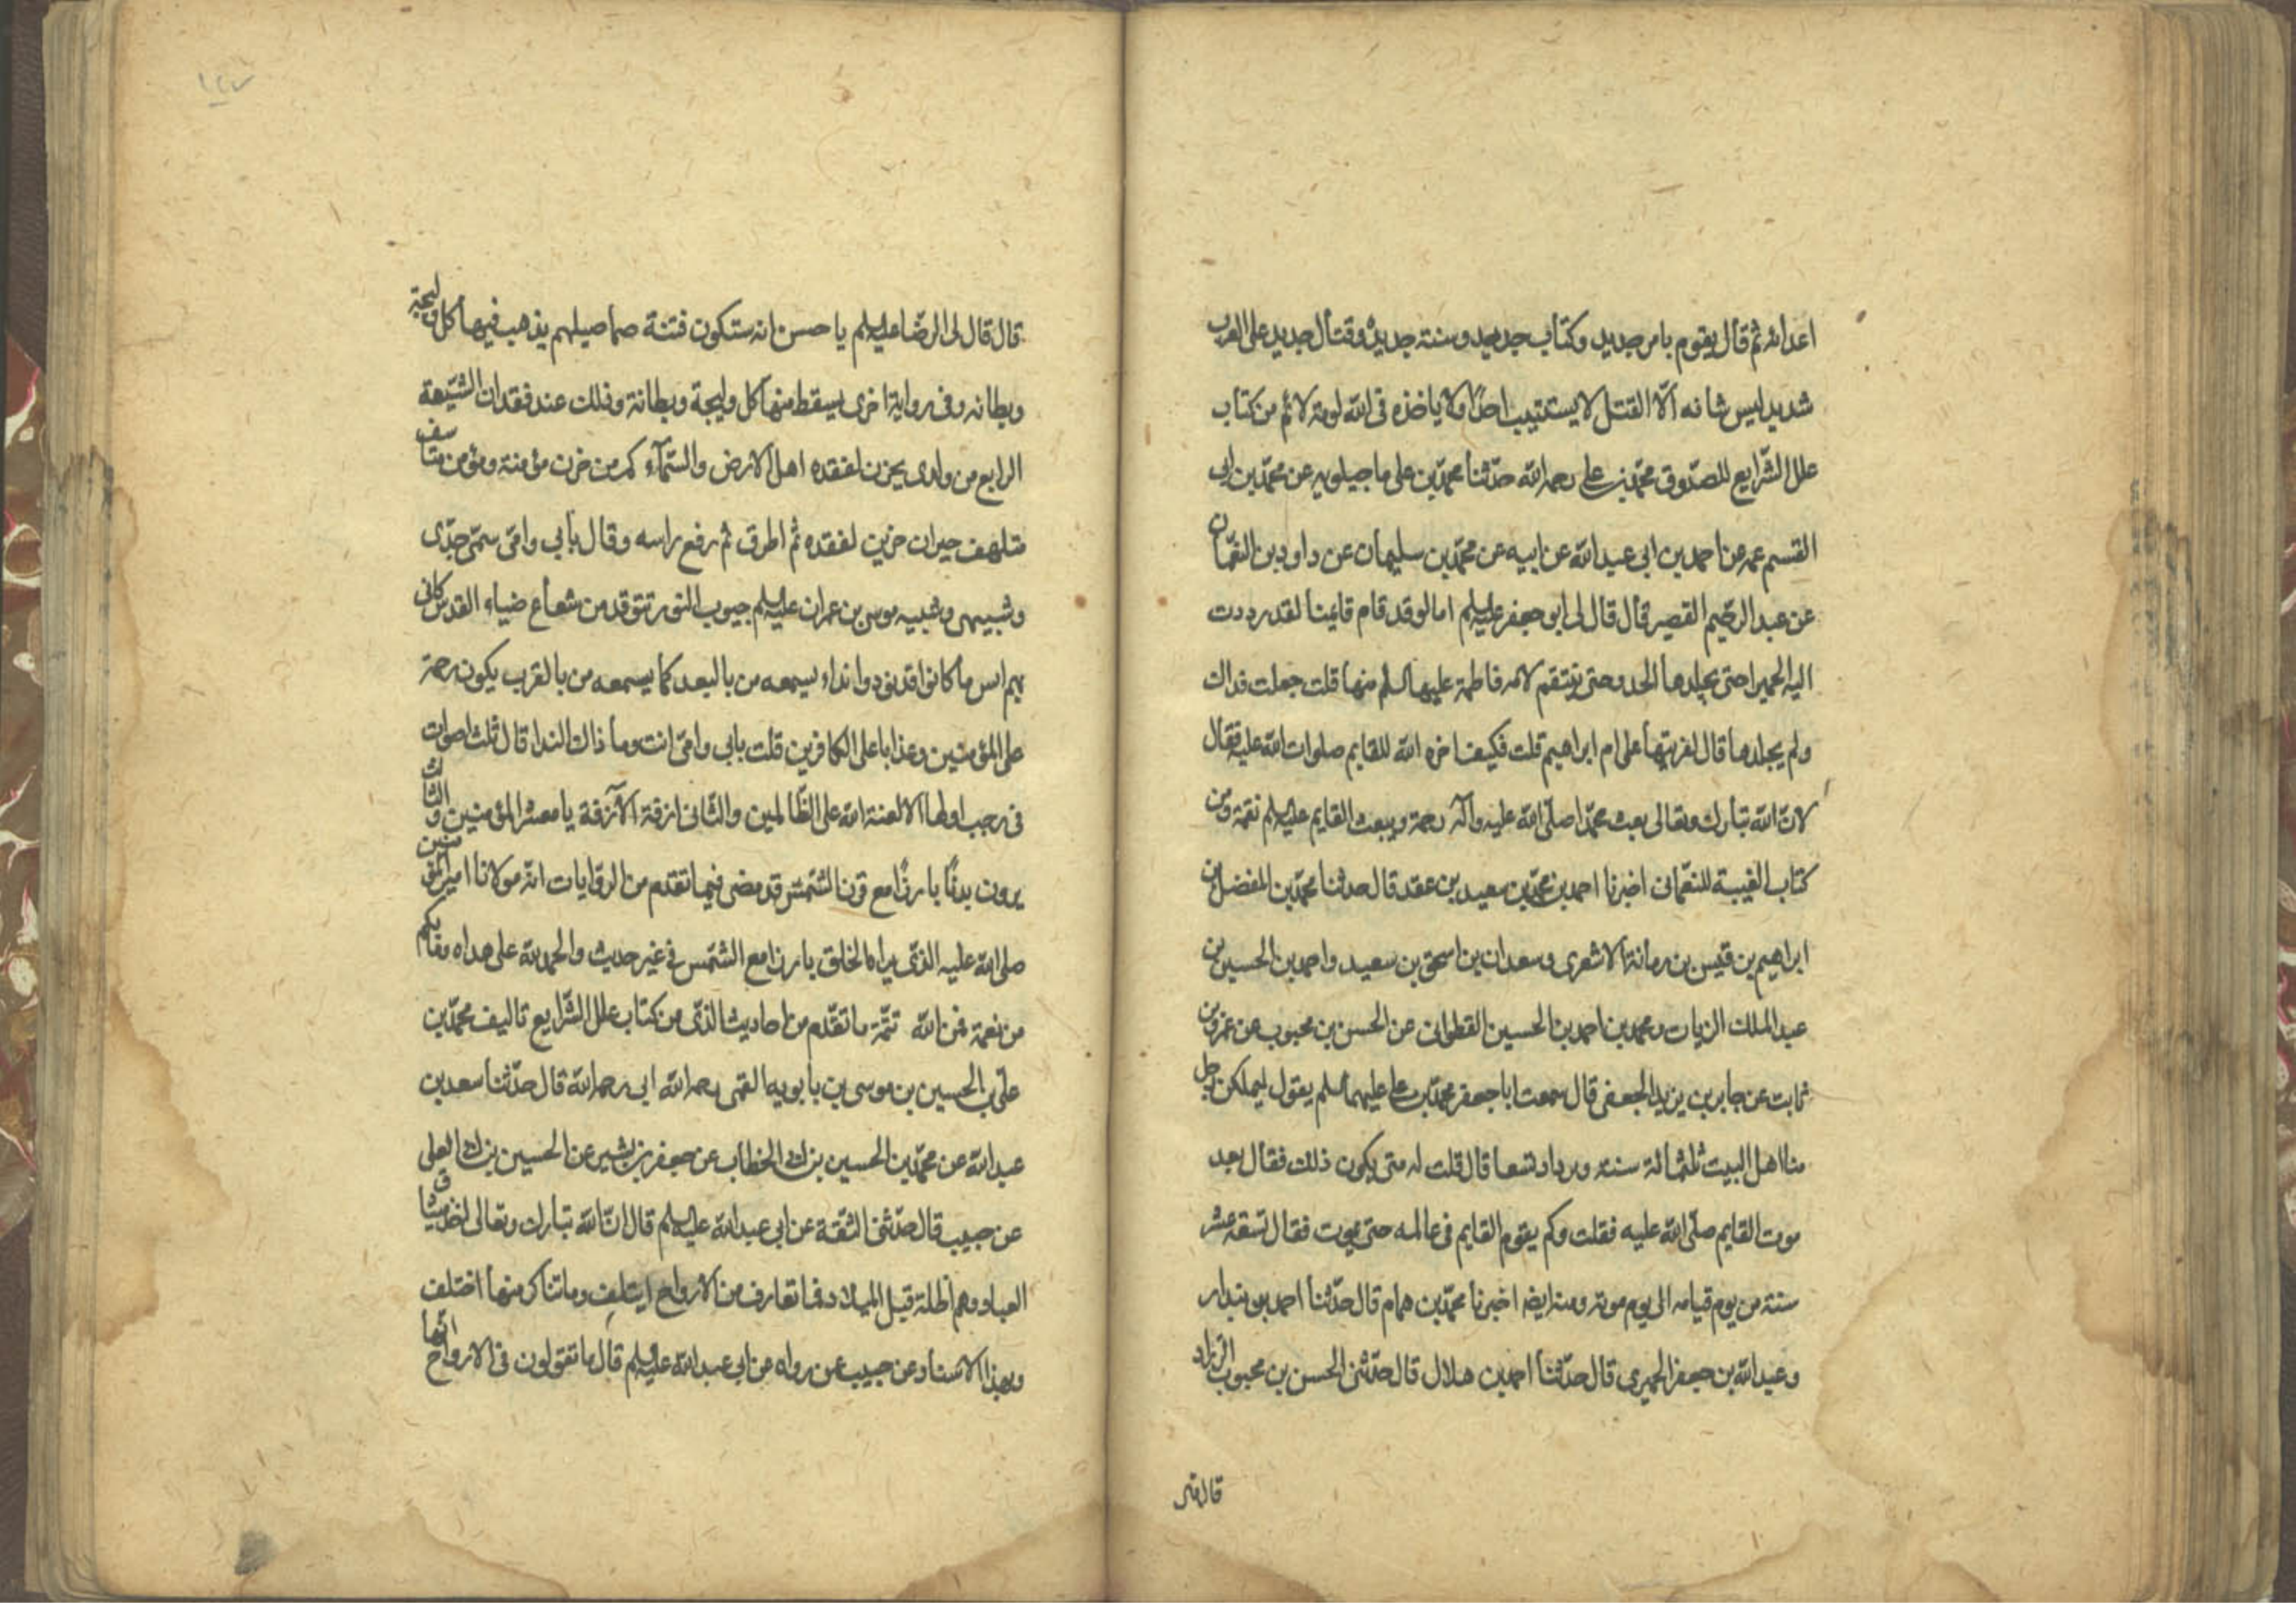 اعدائه ثم قال يقوم بامر جديد وكتاب جديد وسنة جديدة وقتال جديد على العرب
شديد ليس شانه الّا القتل لا يستتيب احدًا ولا ياخذه فى الله لومة لائم من كتاب
علل الشّرايع للصّدوق محمّد بن على رحمه الله حدّثنا محمّد بن على ماجيلويه عن محمّد بن ابى
القسم عمه عن احمد بن ابى عبد الله عن ابيه عن محمّد بن سليمان عن داود بن النعمان
عن عبد الرّحيم القصير قال قال لى ابو جعفر عليه السلم اما لو قد قام قايمنا لقد رددت
اليه الحميرا حتى يجلدها الحد وحتى ينتقم لامه فاطمة عليها السلم منها قلت جعلت فداك
ولم يجلدها قال لفريتها على ام ابراهيم قلت فكيف اخره الله للقايم صلوات الله عليه فقال
لان الله تبارك وتعالى بعث محمّدا صلّى الله عليه وآله رحمة ويبعث القايم عليه السلم نقمة ومن
كتاب الغيبة للنعمانى اخبرنا احمد بن محمّد بن سعيد بن عقد قال حدثنا محمّد بن المفضل بن
ابراهيم بن قيس بن رمانة الاشعرى وسعدان بن اسحق بن سعيد واحمد بن الحسين بن
عبد الملك الزيات ومحمد بن احمد بن الحسين القطوانى عن الحسن بن محبوب عن عمرو بن
ثابت عن جابر بن يزيد الجعفى قال سمعت ابا جعفر محمّد بن على عليهما السلم يقول ليملكن رجل
منا اهل البيت ثلثمائة سنة ويزداد تسعا قال قلت له متى يكون ذلك فقال بعد
موت القايم صلّى الله عليه فقلت وكم يقوم القايم فى عالمه حتى يموت فقال تسقه عشر
سنة من يوم قيامه الى يوم موته ومنه ايضا اخبرنا محمّد بن همام قال حدّثنا احمد بن بندار
وعبد الله بن جعفر الحميرى قال حدّثنا احمد بن هلال قال حدّثنى الحسن بن محبوب الزراد
قال قال
قال قال لى الرضا عليه السلم يا حسن انه ستكون فتنة صما صيلهم يذهب فيها كل وليجة
وبطانه وفى رواية اخرى يسقط منها كل وليجة وبطانة وذلك عند فقدان الشيّعة
الرابع من ولدى يحزن لفقده اهل الارض والسّمآء كم من حزن مؤمنة ومؤمن متاسف
متلهف حيران حزين لفقده ثم اطرق ثم رفع راسه وقال بابى وامّى سمّى جدّى
وشبيهى وشبيه موسى بن عمران عليه السلم جيوب النور تتوقد من شعاع ضياء القدس كانى
بهم ايس ما كانوا قد نودوا نداء يسمعه من بالبعد كما يسمعه من بالقرب يكون رحمة
على المؤمنين وعذابا على الكافرين قلت بابى وامّى انت وما ذاك الندا قال ثلث اصوات
فى رجب اولها الا لعنة الله على الظّالمين والثّانى ازفة الآزفة يا معشر المؤمنين والثالث
يرون بدنًا بارزًا مع قرن الشّمس قد مضى فيما تقدم من الروايات انّه مولانا امير المؤمنين
صلى الله عليه الذّى يراه الخلق بارزا مع الشّمس فى غير حديث والحمد لله على هداه وما بكم
من نعمة فمن الله تتمّة ما تقدّم من احاديث الذّى من كتاب علل الشّرايع تاليف محمّد بن
علّى بن الحسين بن موسى بن بابويه القمى رحمه الله ابى رحمه الله قال حدّثنا سعد بن
عبد الله عن محمّد بن الحسين بن ابى الخطاب عن جعفر بن بشير عن الحسين بن ابى العلى
عن حبيب قال حدّثنى الثقة عن ابى عبد الله عليه السلم قال انّ الله تبارك وتعالى اخذ ميثاق
العباد وهم اظلة قبل الميلاد فما تعارف من الارواح ايتلف وما تناكر منها اختلف
وبهذا الاسناد عن حبيب عمن رواه عن ابى عبد الله عليه السلم قال ما تقولون فى الارواح انّها